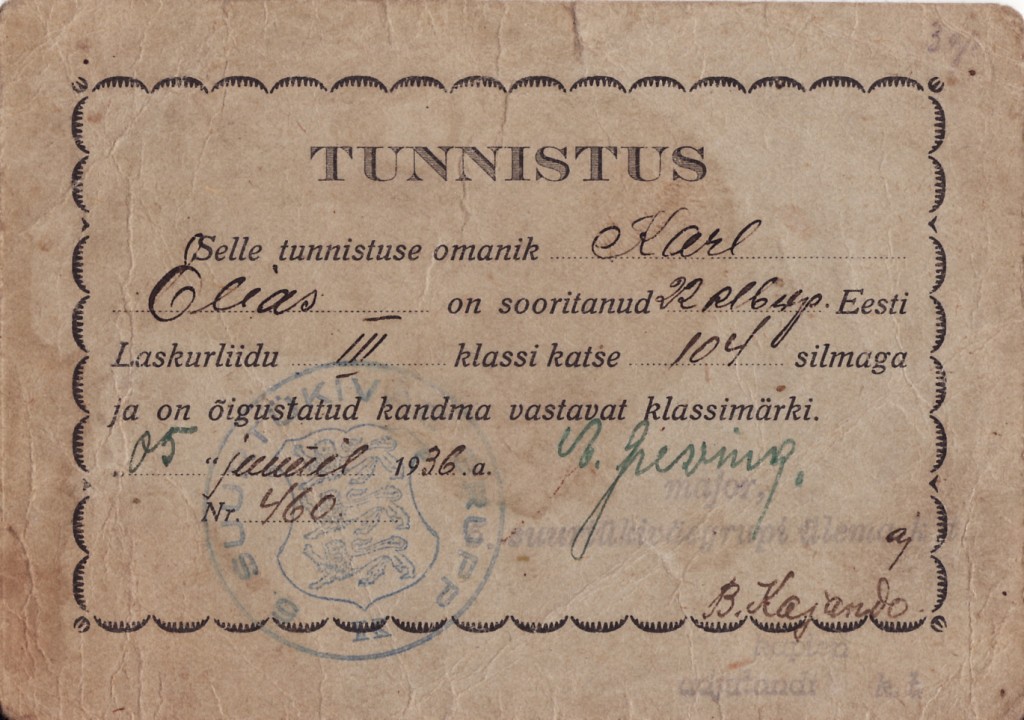 TUNNISTUS
Selle tunnistuse omanik Karl
Elias on sooritanud 22 klbrp. Eesti
Laskurliidu III klassi katse 104 silmaga
ja on õigustatud kandma vastavat klassimärki.
"05" juunil 1936. a.
major,
Nr. 460.
suurtükiväegrupi ülema
aj
B. Kajando
kapten
adjutandi k. t.